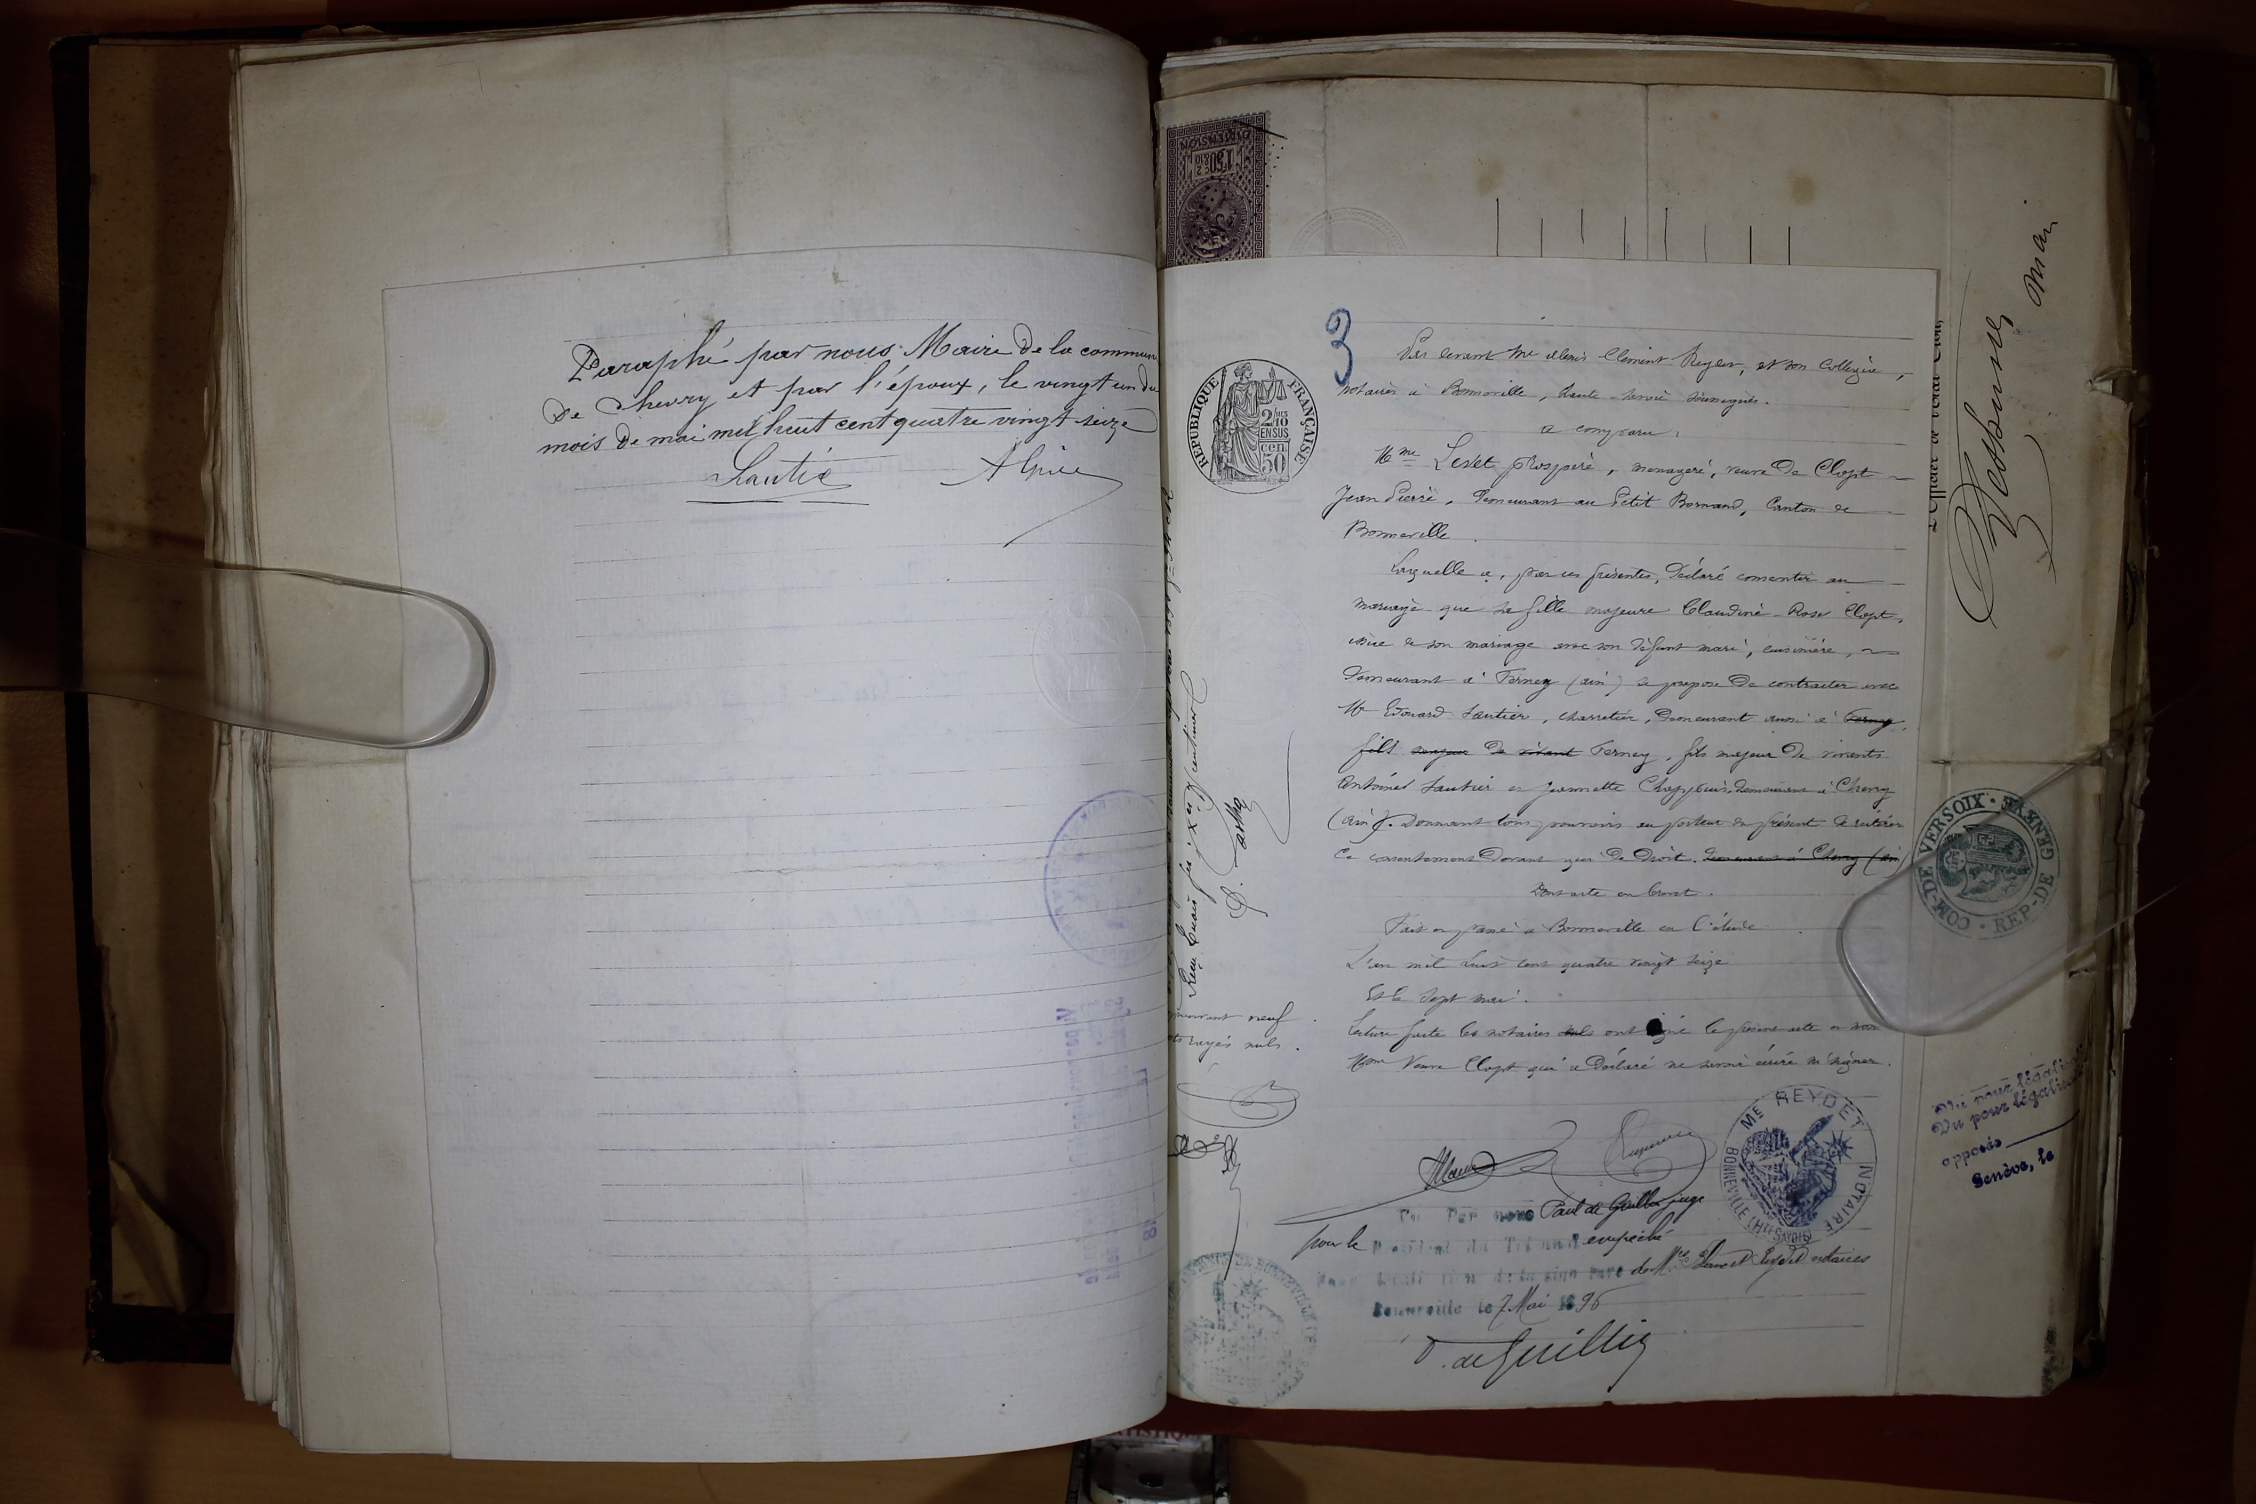 Paraphé par nous Maire de la commune
de Chevry et par l'époux, le vingt un du
mois de mai mil huit cent quatre vingt seize
Lautié Alpice
3
Par devant Me Alexis Clément Reydet, et son Collègue,
notaires à Bonneville, haute-savoie soussignés.
a comparu,
Mme Levet prospère, menagère, veuve de Clopt
Jean Pierre, demeurant au Petit Bornand, Canton de
Bonneville
Laquelle a, par ces présentes, déclaré consentir au
mariage que sa fille majeure Claudine-Rose Clopt,
issue de son mariage avec son défunt mari, cuisinière,
demeurant à Ferney (ain) se propose de contracter avec
Mr Edouard Lautier, charretier, demeurant aussi à Ferney,
fils majeur de vivant Ferney, fils majeur de vivants
Antoine Lautier et Jeannette Chappuis, demeurant à Chevry
(ain). Donnant tous pouvoirs au porteur du présent de réitérer
Ce consentement devant qui de droit. demeurant à Chevry (ain)
Dont acte en brevet.
Fait et passé à Bonneville en l'étude
L'an mil huit cent quatre vingt seize
Et le sept mai.
Lecture faite les notaires ont signé le présent acte et non
Mme Veuve Clopt qui a déclaré ne savoir écrire ni signer.
Vu Par nous Paul de Guillin juge
pour le Président du Tribunal empêché
de la signature de Mes et Reydet notaires
Bonneville le 7 Mai 1896
P. de Guillin
neuf
rayés nuls.
Reçu trois frs. centimes
RÉPUBLIQUE FRANÇAISE
2/10 EN SUS
50 cen
Me REYDET NOTAIRE
BONNEVILLE (Hte SAVOIE)
COM-DE VERSOIX
REP-DE GENÈVE
mai
Vu pour légalis
Vu pour légalis
opposés
Genève, le